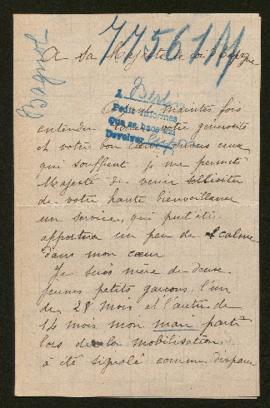 775611/1
Bagnol
A sa Majesté le roi d'Espagne
A Berlin
Pedir informes
Devolver
Ayant maintes fois
entendu votre générosité
et votre bon cœur envers ceux
qui souffrent je me permets
Majesté de venir solliciter
de votre haute bienveillance
un service, qui peut-être
apportera un peu de calme
dans mon cœur
Je suis mère de deux
jeunes petits garçons, l'un
de 28 mois et l'autre de
14 mois mon mari parti
lors de la mobilisation
a été signalé comme disparu